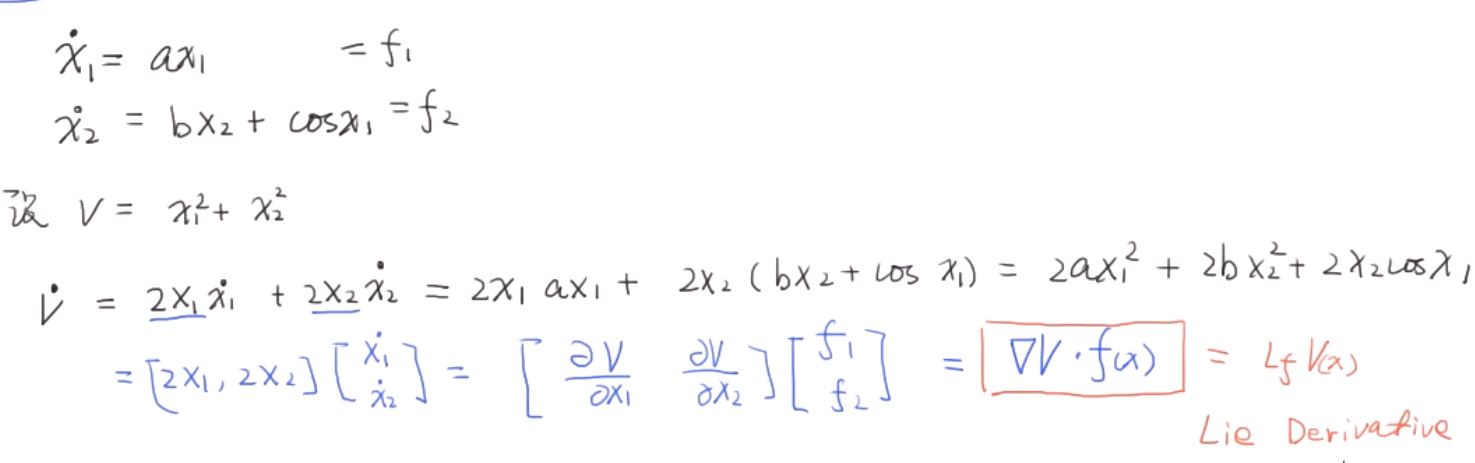 ẋ₁ = ax₁ = f₁
ẋ₂ = bx₂ + cosx₁ = f₂
设 V = x₁² + x₂²
V̇ = 2x₁ẋ₁ + 2x₂ẋ₂ = 2x₁ ax₁ + 2x₂ (bx₂ + cos x₁) = 2ax₁² + 2bx₂² + 2x₂cosx₁
= [2x₁, 2x₂] [ẋ₁ ẋ₂] = [∂V/∂x₁ ∂V/∂x₂] [f₁ f₂] = ∇V·f(x) = L_f V(x)
Lie Derivative